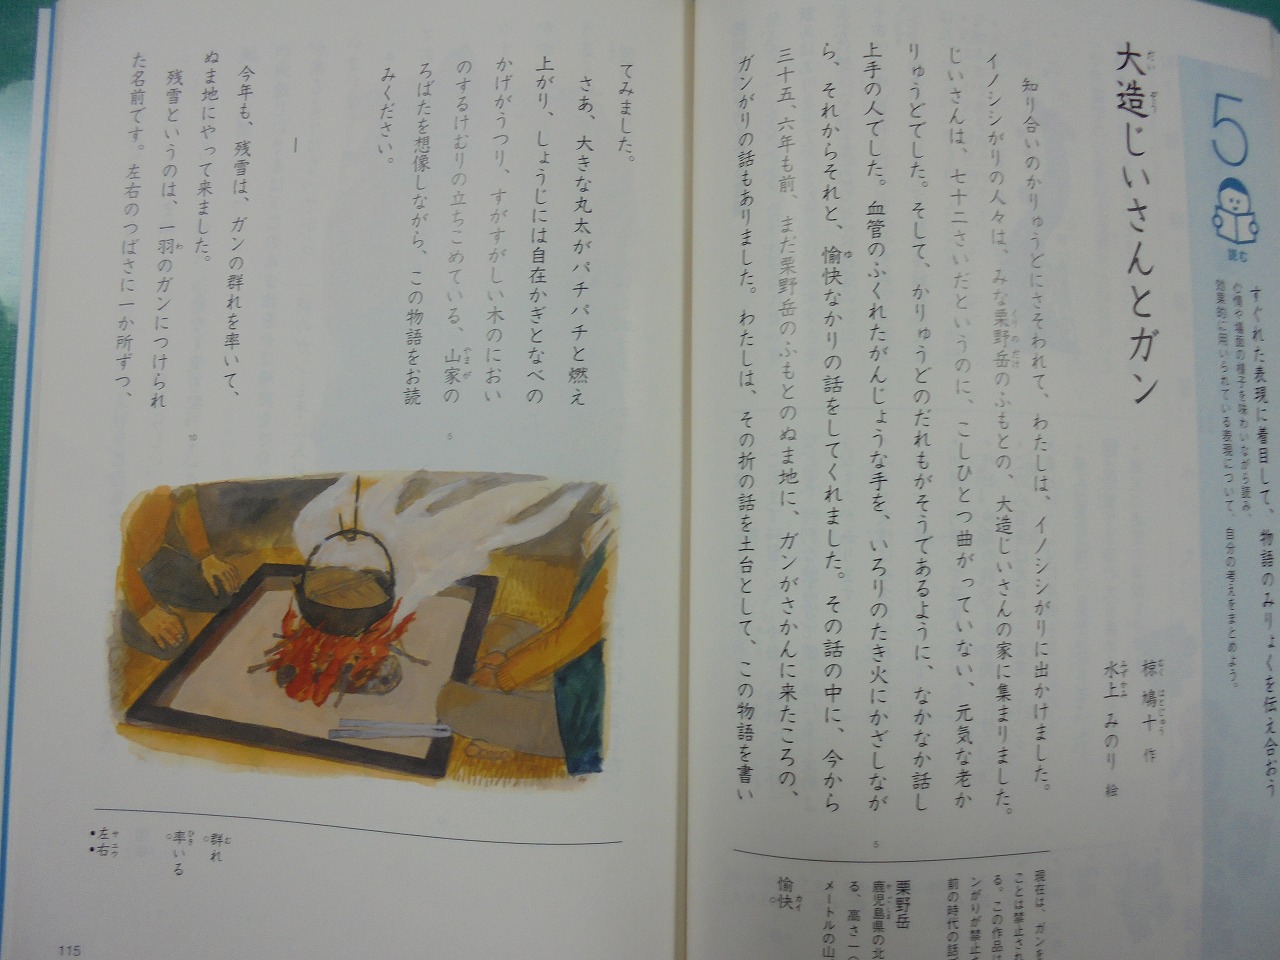 5
読む
すぐれた表現に着目して、物語のみりょくを伝え合おう
心情や場面の様子を味わいながら読み、
効果的に用いられている表現について、自分の考えをまとめよう。
大造じいさんとガン
だい ぞう
椋 鳩十 作
むく はとじゅう
水上 みのり 絵
みずかみ
知り合いのかりゅうどにさそわれて、わたしは、イノシシがりに出かけました。
イノシシがりの人々は、みな栗野岳のふもとの、大造じいさんの家に集まりました。
くり の だけ
じいさんは、七十二さいだというのに、こしひとつ曲がっていない、元気な老か
りゅうどでした。そして、かりゅうどのだれもがそうであるように、なかなか話し
上手の人でした。血管のふくれたがんじょうな手を、いろりのたき火にかざしなが
ら、それからそれと、愉快なかりの話をしてくれました。その話の中に、今から
ゆ
三十五、六年も前、まだ栗野岳のふもとのぬま地に、ガンがさかんに来たころの、
ガンがりの話もありました。わたしは、その折の話を土台として、この物語を書い
5
現在は、ガンを
ことは禁止され
る。この作品は
ンがりが禁止
前の時代の話
栗野岳
鹿児島県の北
かごしま
る、高さ一〇
メートルの山
愉快
カイ
てみました。
さあ、大きな丸太がパチパチと燃え
上がり、しょうじには自在かぎとなべの
かげがうつり、すがすがしい木のにおい
のするけむりの立ちこめている、山家の
やまが
ろばたを想像しながら、この物語をお読
みください。
5
一
今年も、残雪は、ガンの群れを率いて、
ぬま地にやって来ました。
残雪というのは、一羽のガンにつけられ
わ
た名前です。左右のつばさに一か所ずつ、
10
群れ
む
率いる
ひき
左右
サ ユウ
115